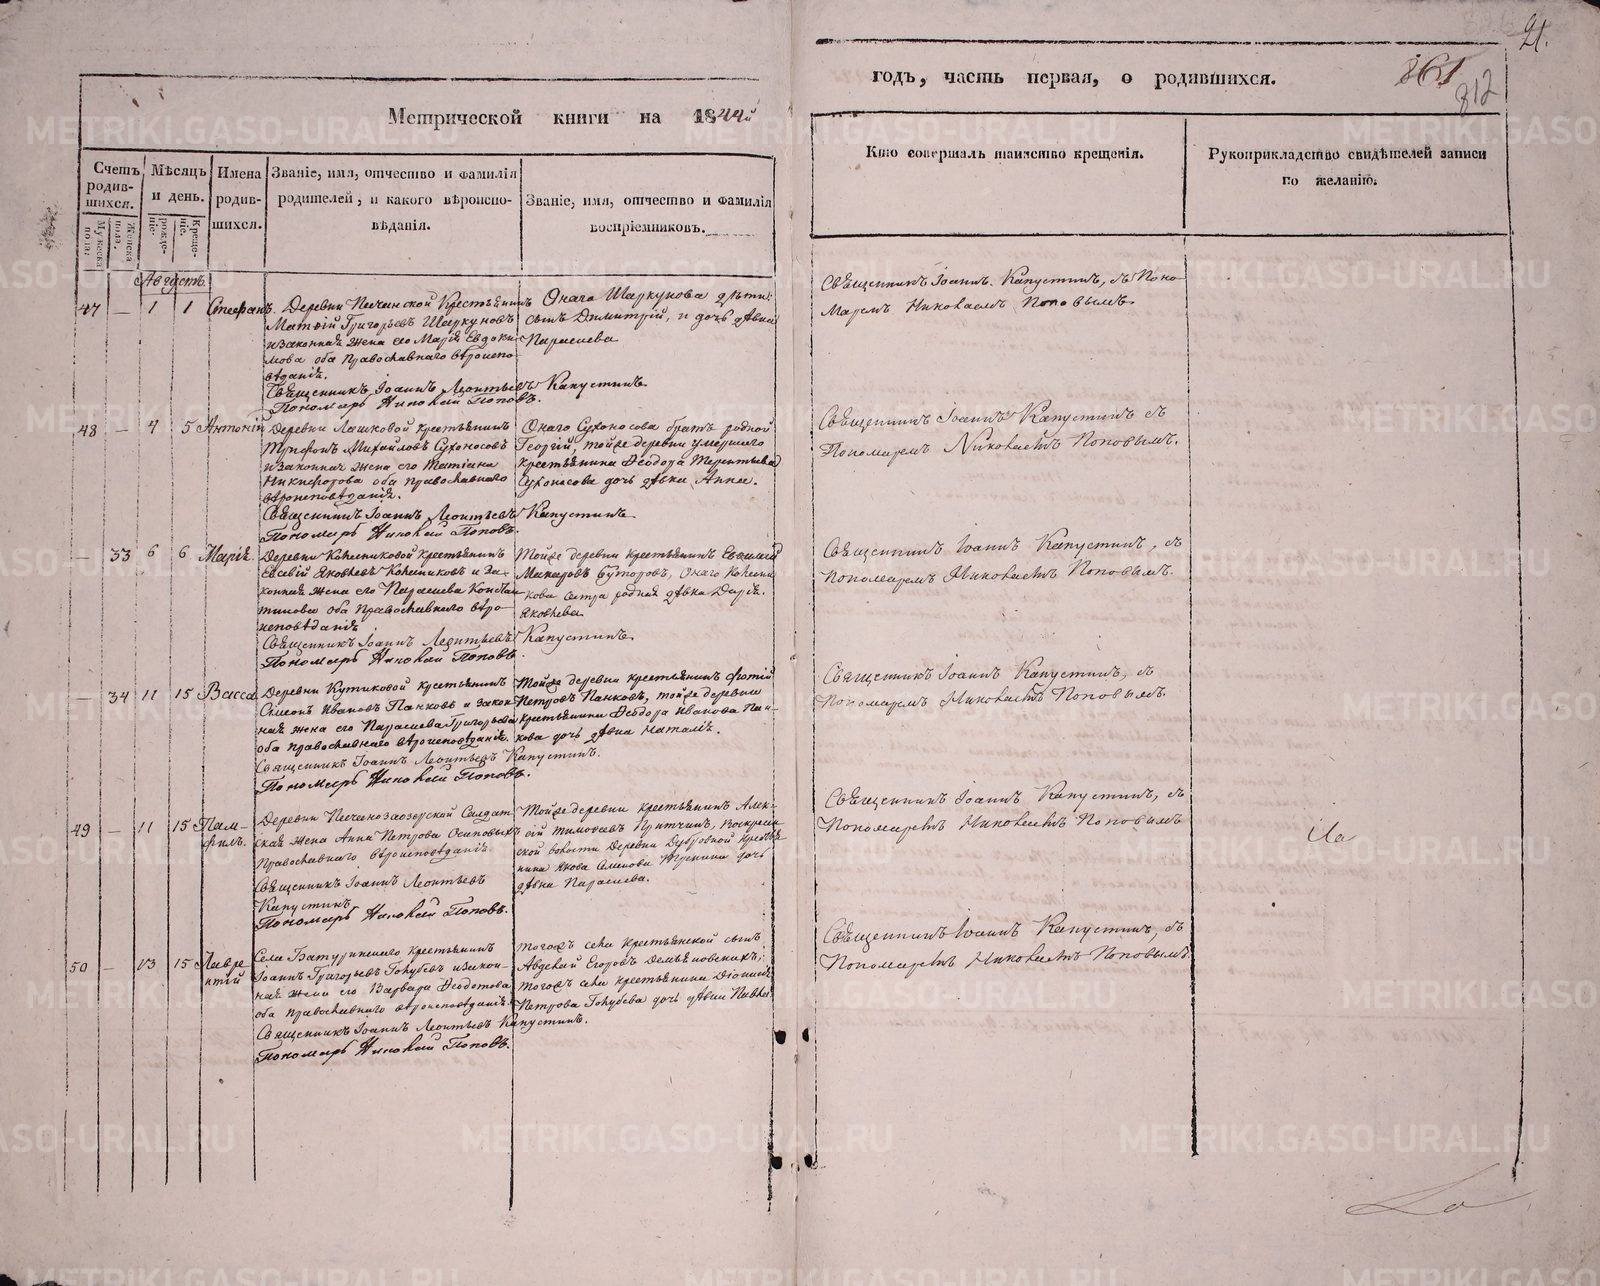 21.
861
812
Метрической книги на 1844й
годъ, часть первая, о родившихся.
Счетъ родив-шихся.
Мужеска пола.
Женска пола.
Мѣсяцъ и день.
рожде-ніе.
Креще-ніе.
Имена родив-шихся.
Званіе, имя, отчество и фамилія
родителей, и какого вѣроиспо-
вѣданія.
Званіе, имя, отчество и фамилія
воспріемниковъ.
Кто совершалъ таинство крещенія.
Рукоприкладство свидѣтелей записи
по желанію.
Августъ.
47 — 1 1 Стефанъ.
Деревни Песчанской крестьянинъ
Матвій Григорьевъ Шаркуновъ
и законная жена его Марія Евдоки-
мова оба православнаго вѣроиспо-
вѣданія.
Онаго Шаркунова дѣти:
сынъ Димитрій, и дочь дѣвка
Параскева
Священникъ Іоаннъ Леонтьевъ Капустинъ
Пономарь Николай Поповъ.
Священникъ Іоаннъ Капустинъ, съ Поно-
маремъ Николаемъ Поповымъ.
48 — 4 5 Антоній
Деревни Лашковой крестьянинъ
Трифонъ Михайловъ Сухоносовъ
и законная жена его Татіана
Никифорова оба православнаго
вѣроисповѣданія.
Онаго Сухоносова братъ родной
Георгій, тойже деревни умершаго
крестьянина Ѳеодора Терентьева
Сухоносова дочь дѣвка Анна.
Священникъ Іоаннъ Леонтьевъ Капустинъ
Пономарь Николай Поповъ.
Священникъ Іоаннъ Капустинъ съ
Пономаремъ Николаемъ Поповымъ.
— 33 6 6 Марія.
Деревни Колесниковой крестьянинъ
Евсевій Яковлевъ Колесниковъ и за-
конная жена его Параскева Констан-
тинова оба православнаго вѣро-
исповѣданія
Тойже деревни крестьянинъ
Макаровъ Буторовъ, Онаго Колесни-
кова сестра родная дѣвка Дарія
Яковлева
Священникъ Іоаннъ Леонтьевъ Капустинъ
Пономарь Николай Поповъ.
Священникъ Іоаннъ Капустинъ, съ
Пономаремъ Николаемъ Поповымъ.
— 34 11 15 Васса
Деревни Кутиковой крестьянинъ
Симеонъ Ивановъ Панковъ и закон-
ная жена его Параскева Григорьева
оба православнаго вѣроисповѣданія.
Тойже деревни крестьянинъ Фотій
Петровъ Панковъ, тойже деревни
крестьянина Ѳеодора Иванова Пан-
кова дочь дѣвка Наталія.
Священникъ Іоаннъ Леонтьевъ Капустинъ.
Пономарь Николай Поповъ.
Священникъ Іоаннъ Капустинъ, съ
Пономаремъ Николаемъ Поповымъ
49 — 11 15 Пам-
филъ.
Деревни Песчанозаозерской Салдат-
ская жена Анна Петрова Осиповыхъ
Православнаго вѣроисповѣданія.
Тойже деревни крестьянинъ Алек-
сій Тимоѳеевъ Притчинъ, Воскресен-
ской волости Деревни Дубровной крестья-
нина Якова Семенова дочь
дѣвка Параскева.
Священникъ Іоаннъ Леонтьевъ
Капустинъ
Пономарь Николай Поповъ.
Священникъ Іоаннъ Капустинъ, съ
Пономаремъ Николаемъ Поповымъ
50 — 13 15 Лавре-
нтій
Села Батуринскаго крестьянинъ
Іоаннъ Григорьевъ Голубевъ и закон-
ная жена его Варвара Ѳеодотова
оба православнаго вѣроисповѣданія.
Тогожъ села крестьянской сынъ
Авдокій Егоровъ Демьяновскихъ;
тогожъ села крестьянина Діонисія
Петрова Голубева дочь дѣвка Павла
Священникъ Іоаннъ Леонтьевъ Капустинъ.
Пономарь Николай Поповъ.
Священникъ Іоаннъ Капустинъ, съ
Пономаремъ Николаемъ Поповымъ.
METRIKI.GASO-URAL.RU